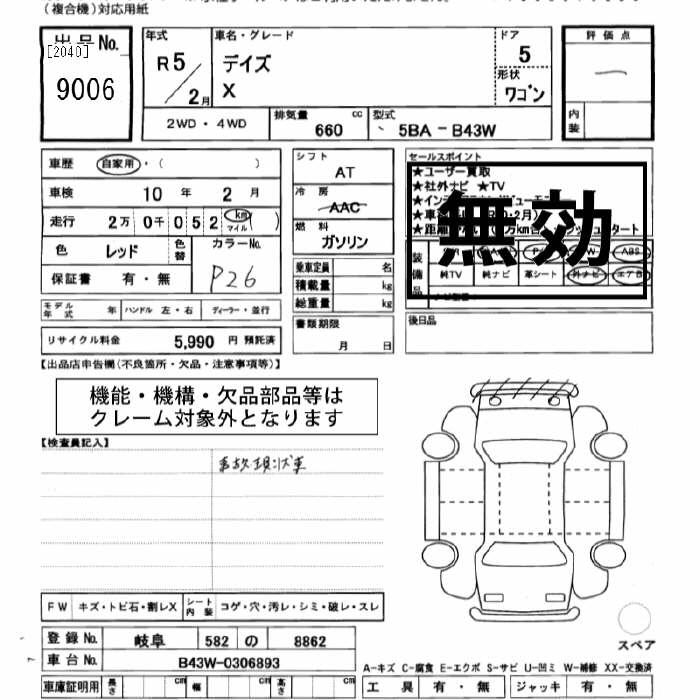 (複合機)対応用紙
出品No.
[2040]
9006
年式
R5
2月
車名・グレード
デイズ
X
ドア
5
形状
ワゴン
評価点
内装
2WD・4WD
排気量
660
cc
型式
5BA－B43W
車歴
自家用・( )
車検
10 年 2 月
走行
2万 0千 052
km
マイル
( )
色
レッド
色替
カラーNo.
P26
保証書
有・無
シフト
AT
冷房
AAC
燃料
ガソリン
乗車定員
名
積載量
kg
総重量
kg
セールスポイント
★ユーザー買取
★社外ナビ ★TV
無効
装備品
ABS
純TV
純ナビ
革シート
外ナビ
エアB
モデル年式
年
ハンドル 左・右
ディーラー・並行
リサイクル料金
5,990 円 預託済
書類期限
月 日
後日品
【出品店申告欄(不良箇所・欠品・注意事項等)】
機能・機構・欠品部品等は
クレーム対象外となります
【検査員記入】
事故現状車
FW
キズ・トビ石・割レX
シート内装
コゲ・穴・汚レ・シミ・破レ・スレ
登録No.
岐阜
582
の
8862
車台No.
B43W-0306893
車庫証明用
長さ
cm
幅
cm
高さ
cm
スペア
A-キズ C-腐食 E-エクボ S-サビ U-凹ミ W-補修 XX-交換済
工具
有・無
ジャッキ
有・無